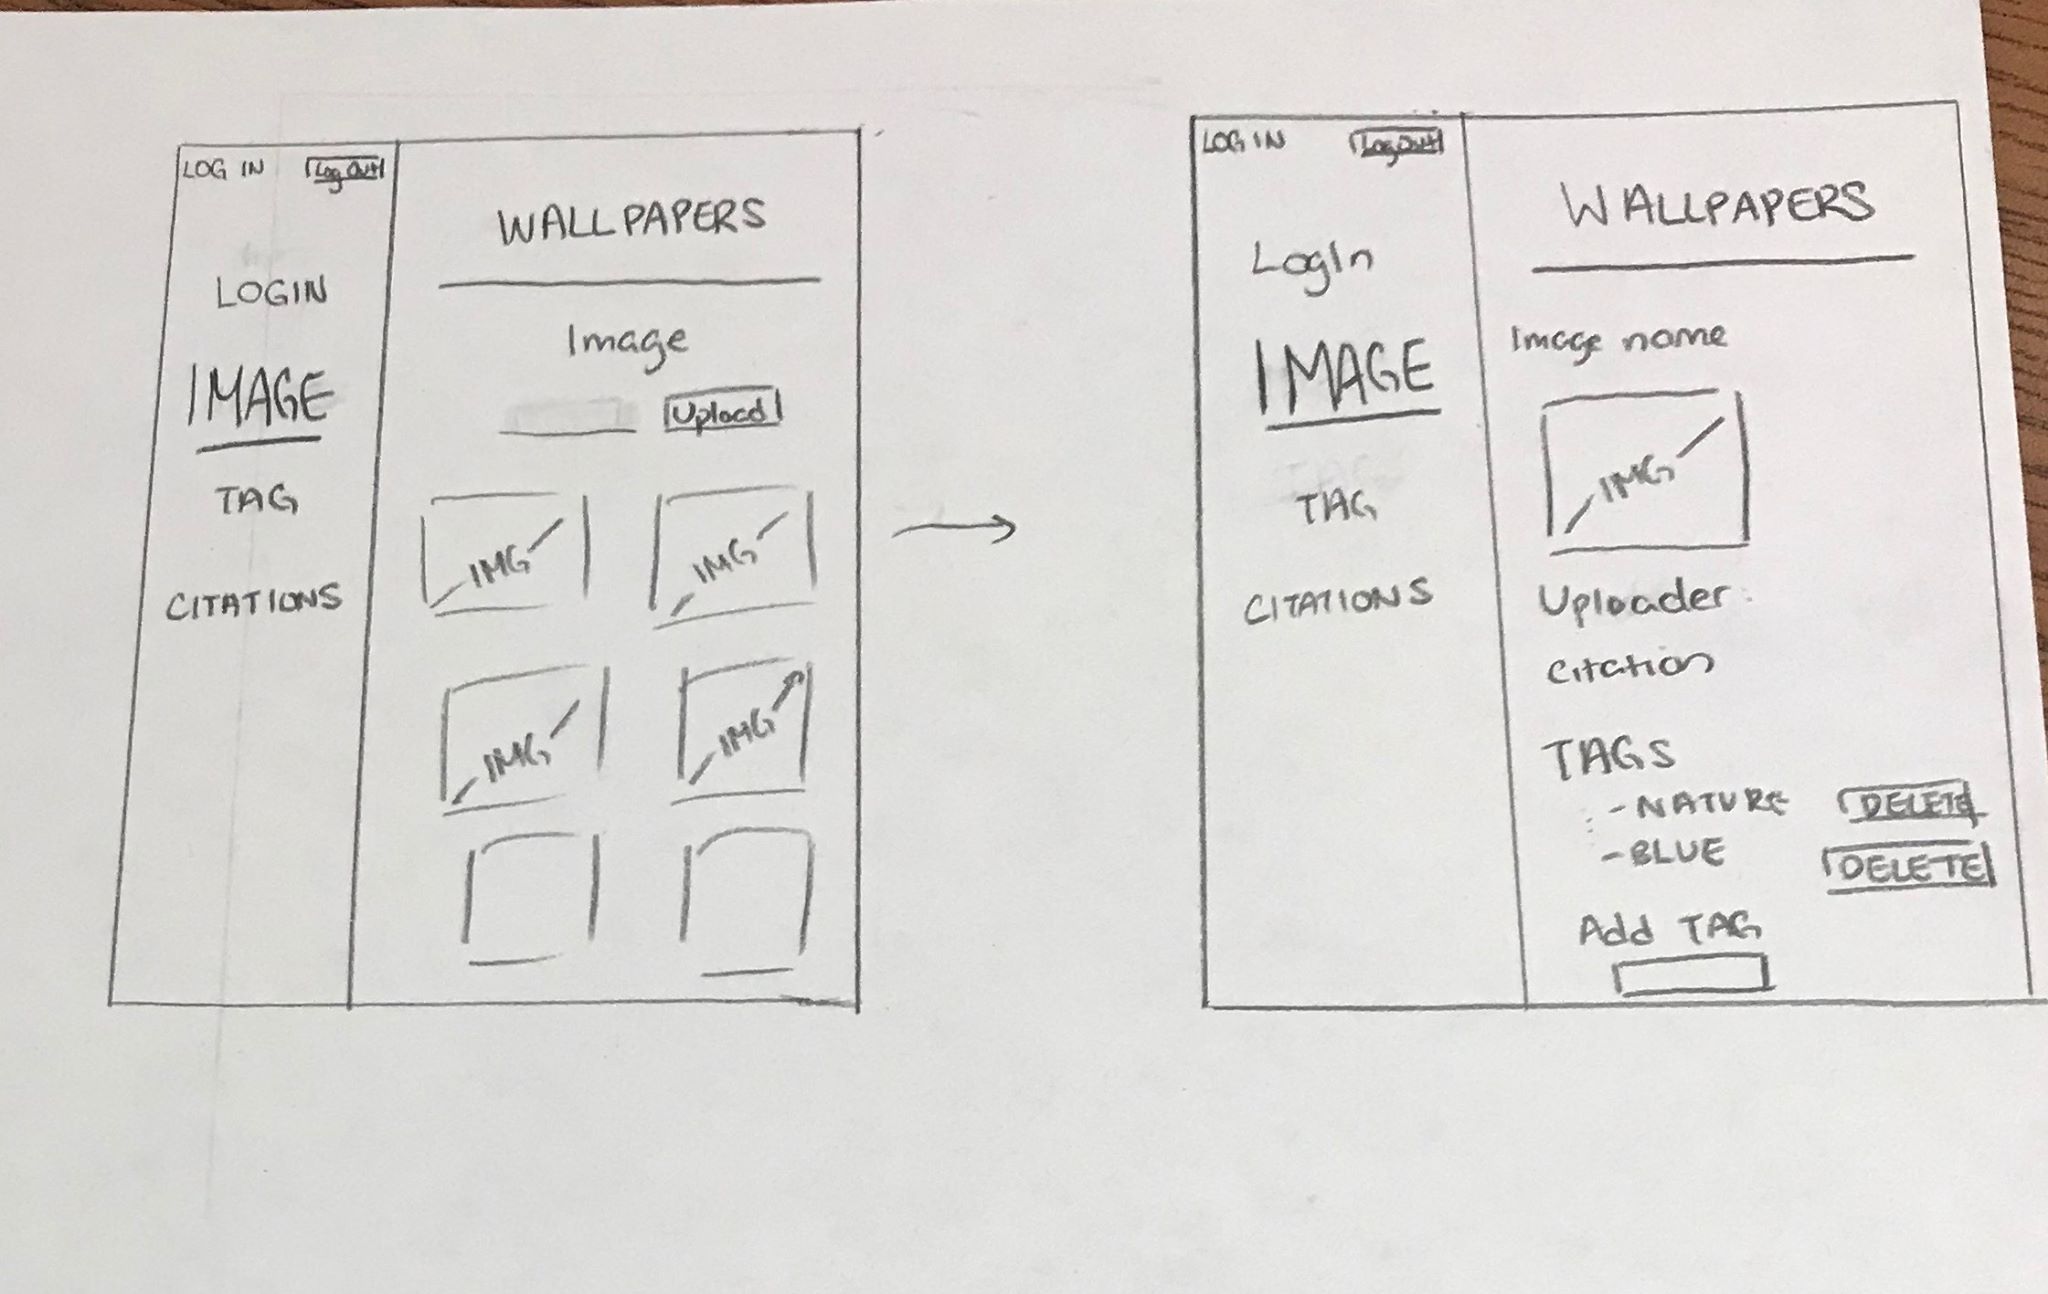 LOG IN Log Out
LOGIN
IMAGE
TAG
CITATIONS
WALLPAPERS
Image
Upload
IMG IMG
IMG IMG
LOG IN Log Out
LogIn
IMAGE
TAG
CITATIONS
WALLPAPERS
Image name
IMG
Uploader
Citation
TAGS
- NATURE DELETE
- BLUE DELETE
Add TAG